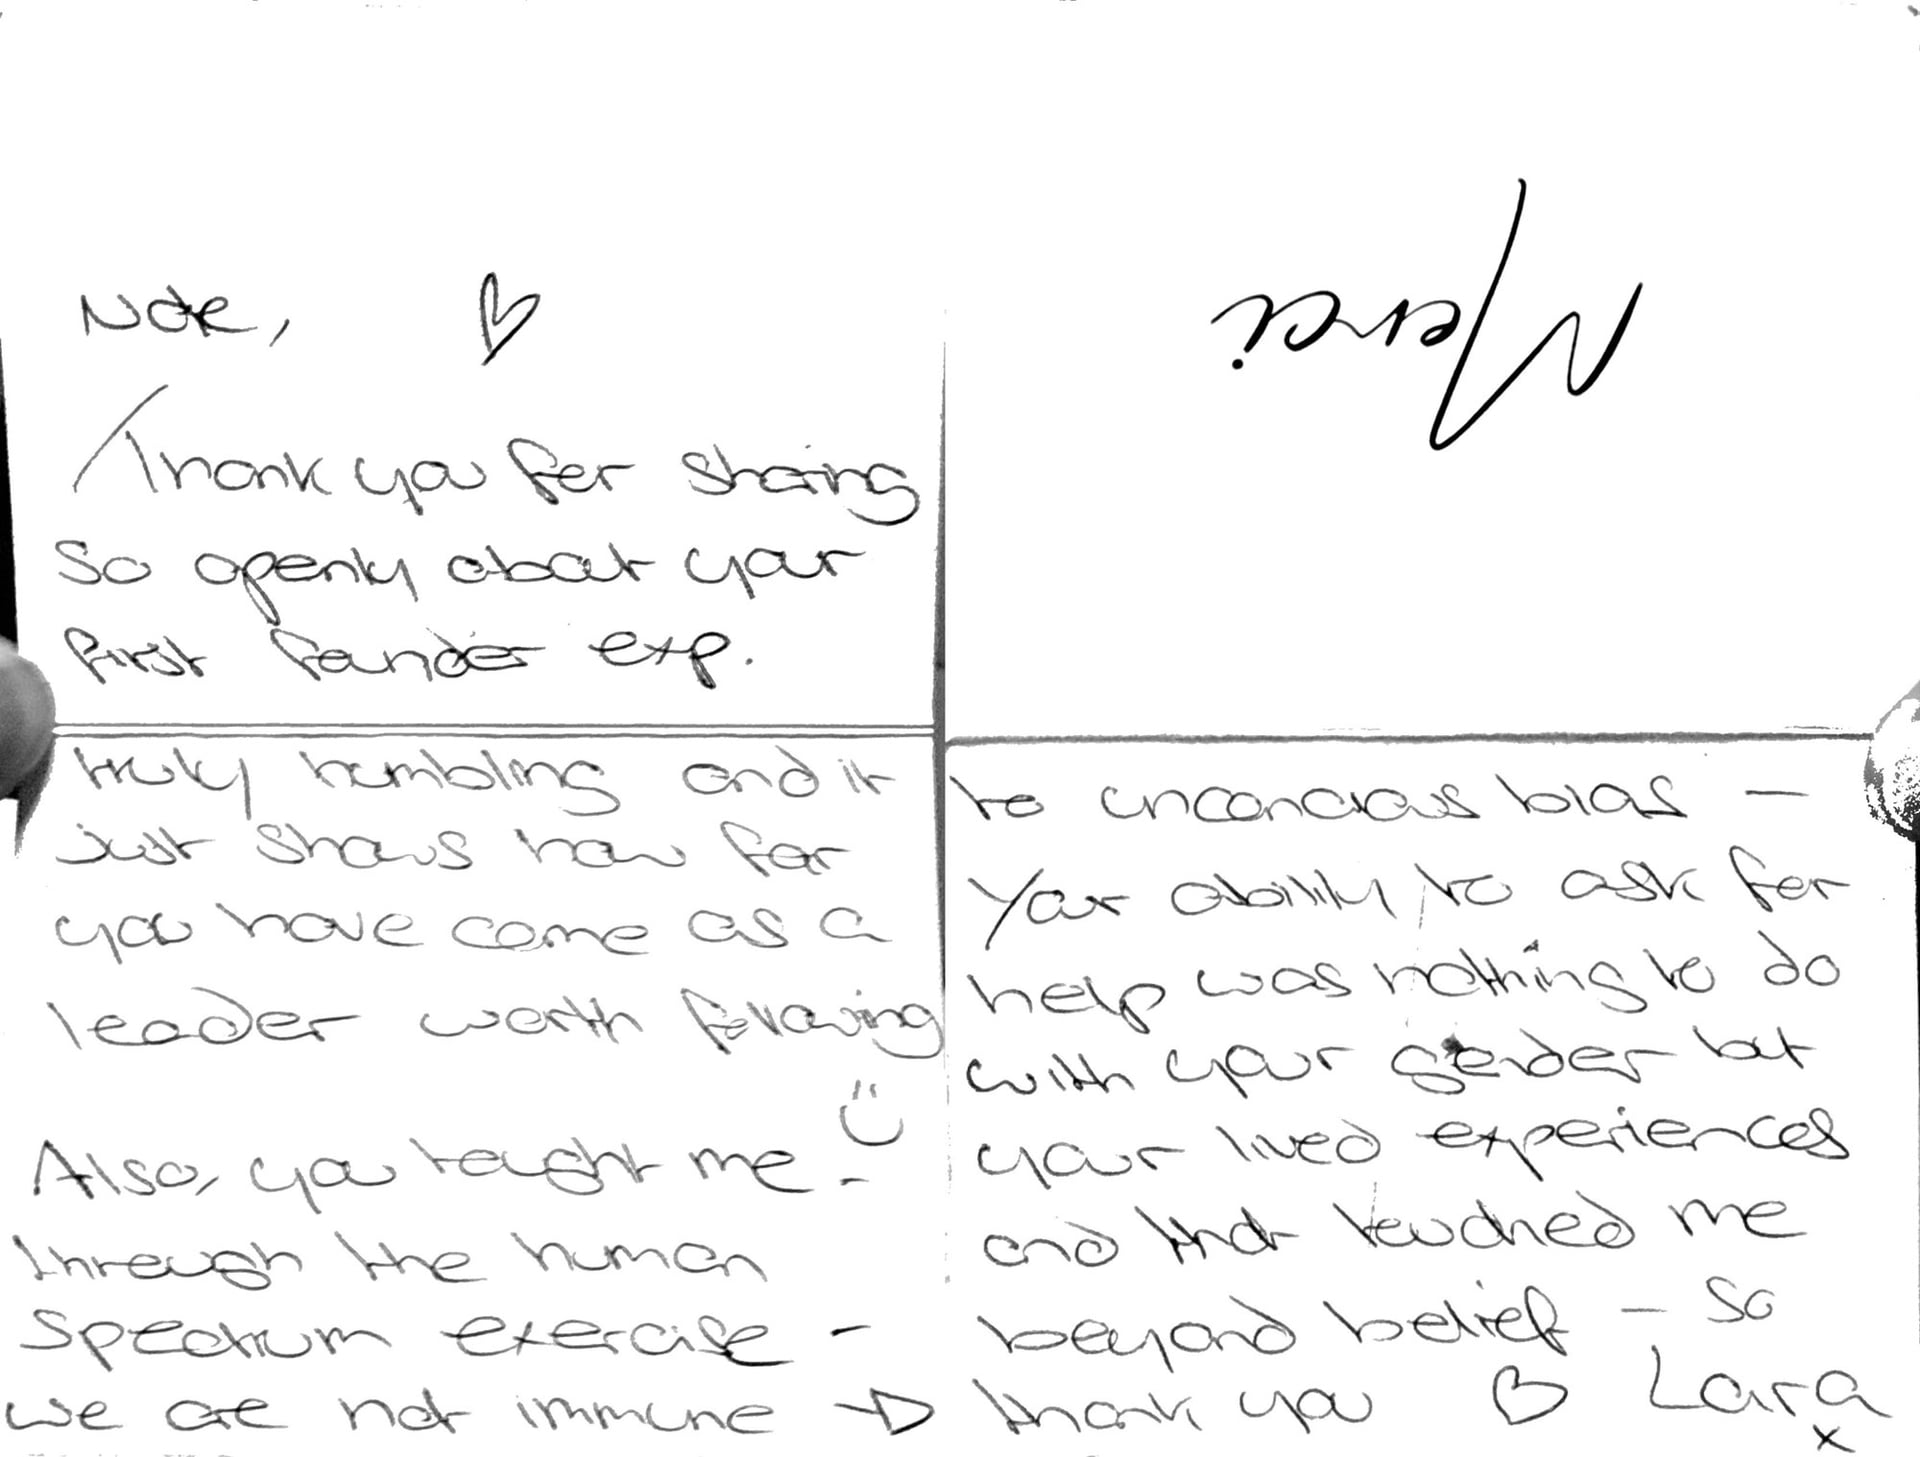 Nate, ♡
Thank you for sharing
so openly about your
first founder exp.
truly humbling and it
just shows how far
you have come as a
leader worth following
Also, you taught me -
through the human
spectrum exercise -
we are not immune →
Merci
to unconcious bias —
Your ability to ask for
help was nothing to do
with your gender but
your lived experiences
and that touched me
beyond belief — so
thank you ♡ Lara
x